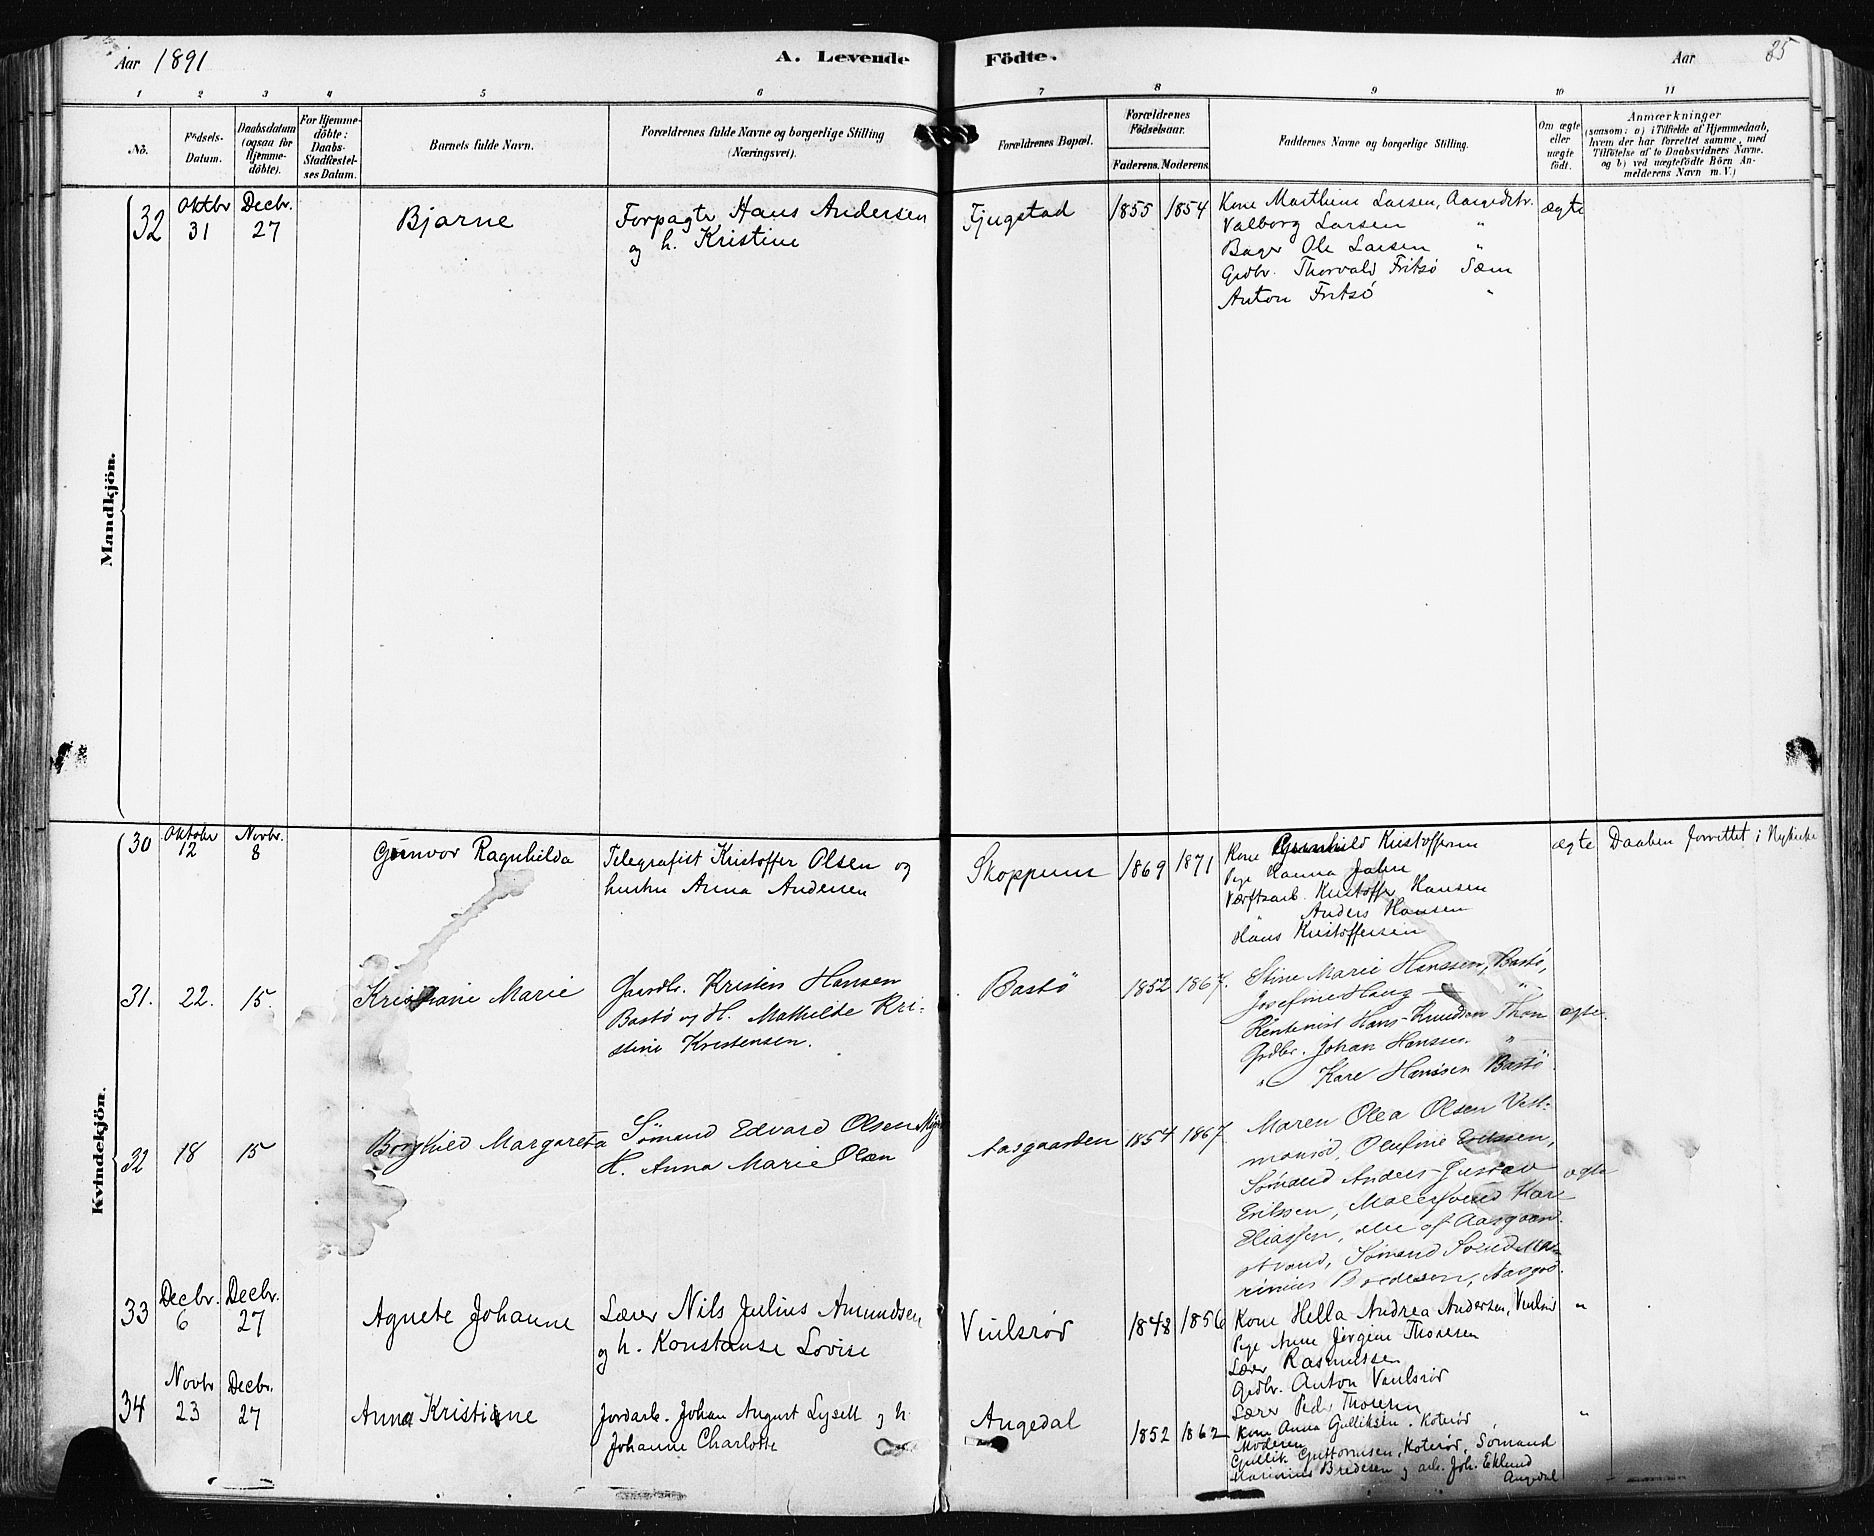 Aar 1891
A. Levende Födte.
Aar 25
1 2 3 4 5 6 7 8 9 10 11
No.
Födsels-
Datum.
Daabsdatum
(ogsaa för
Hjemme-
döbte).
For Hjemme-
döbte:
Daabs-
Stadfæstel-
ses Datum.
Barnets fulde Navn.
Forældrenes fulde Navne og borgerlige Stilling
(Næringsvei).
Forældrenes Bopæl.
Forældrenes
Födselsaar.
Faderens. Moderens.
Faddernes Navne og borgerlige Stilling.
Om ægte
eller
uægte
födt.
Anmærkninger
(saasom: a) i Tilfælde af Hjemmedaab,
hvem der har forrettet samme, med
Tilföielse af to Daabsvidners Navne.
og b) ved uægtefödte Börn An-
melderens Navn m. V.)
Mandkjön.
32
Oktbr
31
Decbr.
27
Bjarne
Forpagter Hans Andersen
og h. Kristine
Fjugstad
1855
1854
Kone Marthine Larsen, Aasgdstr.
Valborg Larsen "
Bager Ole Larsen "
Grdbr. Thorvald Fritsö Sæm
Anton Fritsö "
ægte
Kvindekjön.
30
Oktober
12
Novbr.
8
Gunvor Ragnhilda
Telegrafist Kristoffer Olsen og
hustru Anna Andersen
Skoppum
1869
1871
Kone Gunhild Kristoffersen
Pige Hanna Jahre
Værftsarb. Kristoffer Hansen
" Anders Hansen
Hans Kristoffersen
ægte
Daaben forrettet i Nykirke
31.
22.
15.
Kristiane Marie
Gaardbr. Kristen Hansen
Bastö og H. Mathilde Kri-
stine Kristensen.
Bastö
1852
1867.
Stine Marie Hanssen, Bastö,
Josefine Haug "
Rentenist Hans Knudsen Thon
Grdbr. Johan Hansen "
" Kare Hanssen Bastö.
ægte.
32
18
15
Borghild Margareta
Sömand Edvard Olsen
H. Anna Marie Olsen
Aasgaarden
1854
1867
Maren Olea Olsen Vest-
mansröd, Olufine Erikssen,
Sömand Anders Gustav
Erikssen, Malersvend Kare
Eliassen, alle af Aasgaard-
strand, Sömand Svend Ma-
rinius Bredesen, Aasgrd.
ægte
33
Decbr.
6
Decbr.
27
Agnete Johanne
Lærer Nils Julius Amundsen
og h. Konstanse Lovise
Viulsrød
1848
1856
Kone Hella Andrea Andersen, Viulsrød
Pige Anne Jørgine Thoresen
Lærer Rasmussen
Grdbr. Anton Viulsrød
Lærer Peder Thoresen
"
34
Novbr
23
Decbr.
27
Anna Kristiane
Jordarb. Johan August Lysell og h
Johanne Charlotte
Augedal
1852
1862
Kone Anna Gulliksen. Koterød
Moderen
Gullik Guttormsen, Koterød, Sømand
Marinius Bredesen og arb. Joh. Eklund
Augedal
"